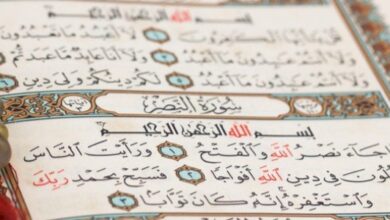 بِسْمِ اللهِ الرَّحْمٰنِ الرَّحِيمِ
قُلْ يَٰٓأَيُّهَا الْكَٰفِرُونَ ١ لَآ أَعْبُدُ مَا تَعْبُدُونَ
٢ وَلَآ أَنتُمْ عَٰبِدُونَ مَآ أَعْبُدُ ٣ وَلَآ أَنَا۠ عَابِدٌ مَّا عَبَدتُّمْ
٤ وَلَآ أَنتُمْ عَٰبِدُونَ مَآ أَعْبُدُ ٥ لَكُمْ دِينُكُمْ وَلِيَ دِينِ
سُورَةُ النَّصْرِ
بِسْمِ اللهِ الرَّحْمٰنِ الرَّحِيمِ
جَآءَ نَصْرُ اللهِ وَالْفَتْحُ ١ وَرَأَيْتَ النَّاسَ
فِي دِينِ اللهِ أَفْوَاجًا ٢ فَسَبِّحْ بِحَمْدِ رَبِّكَ
وَاسْتَغْفِرْهُ إِنَّهُ كَانَ تَوَّابًا ٣